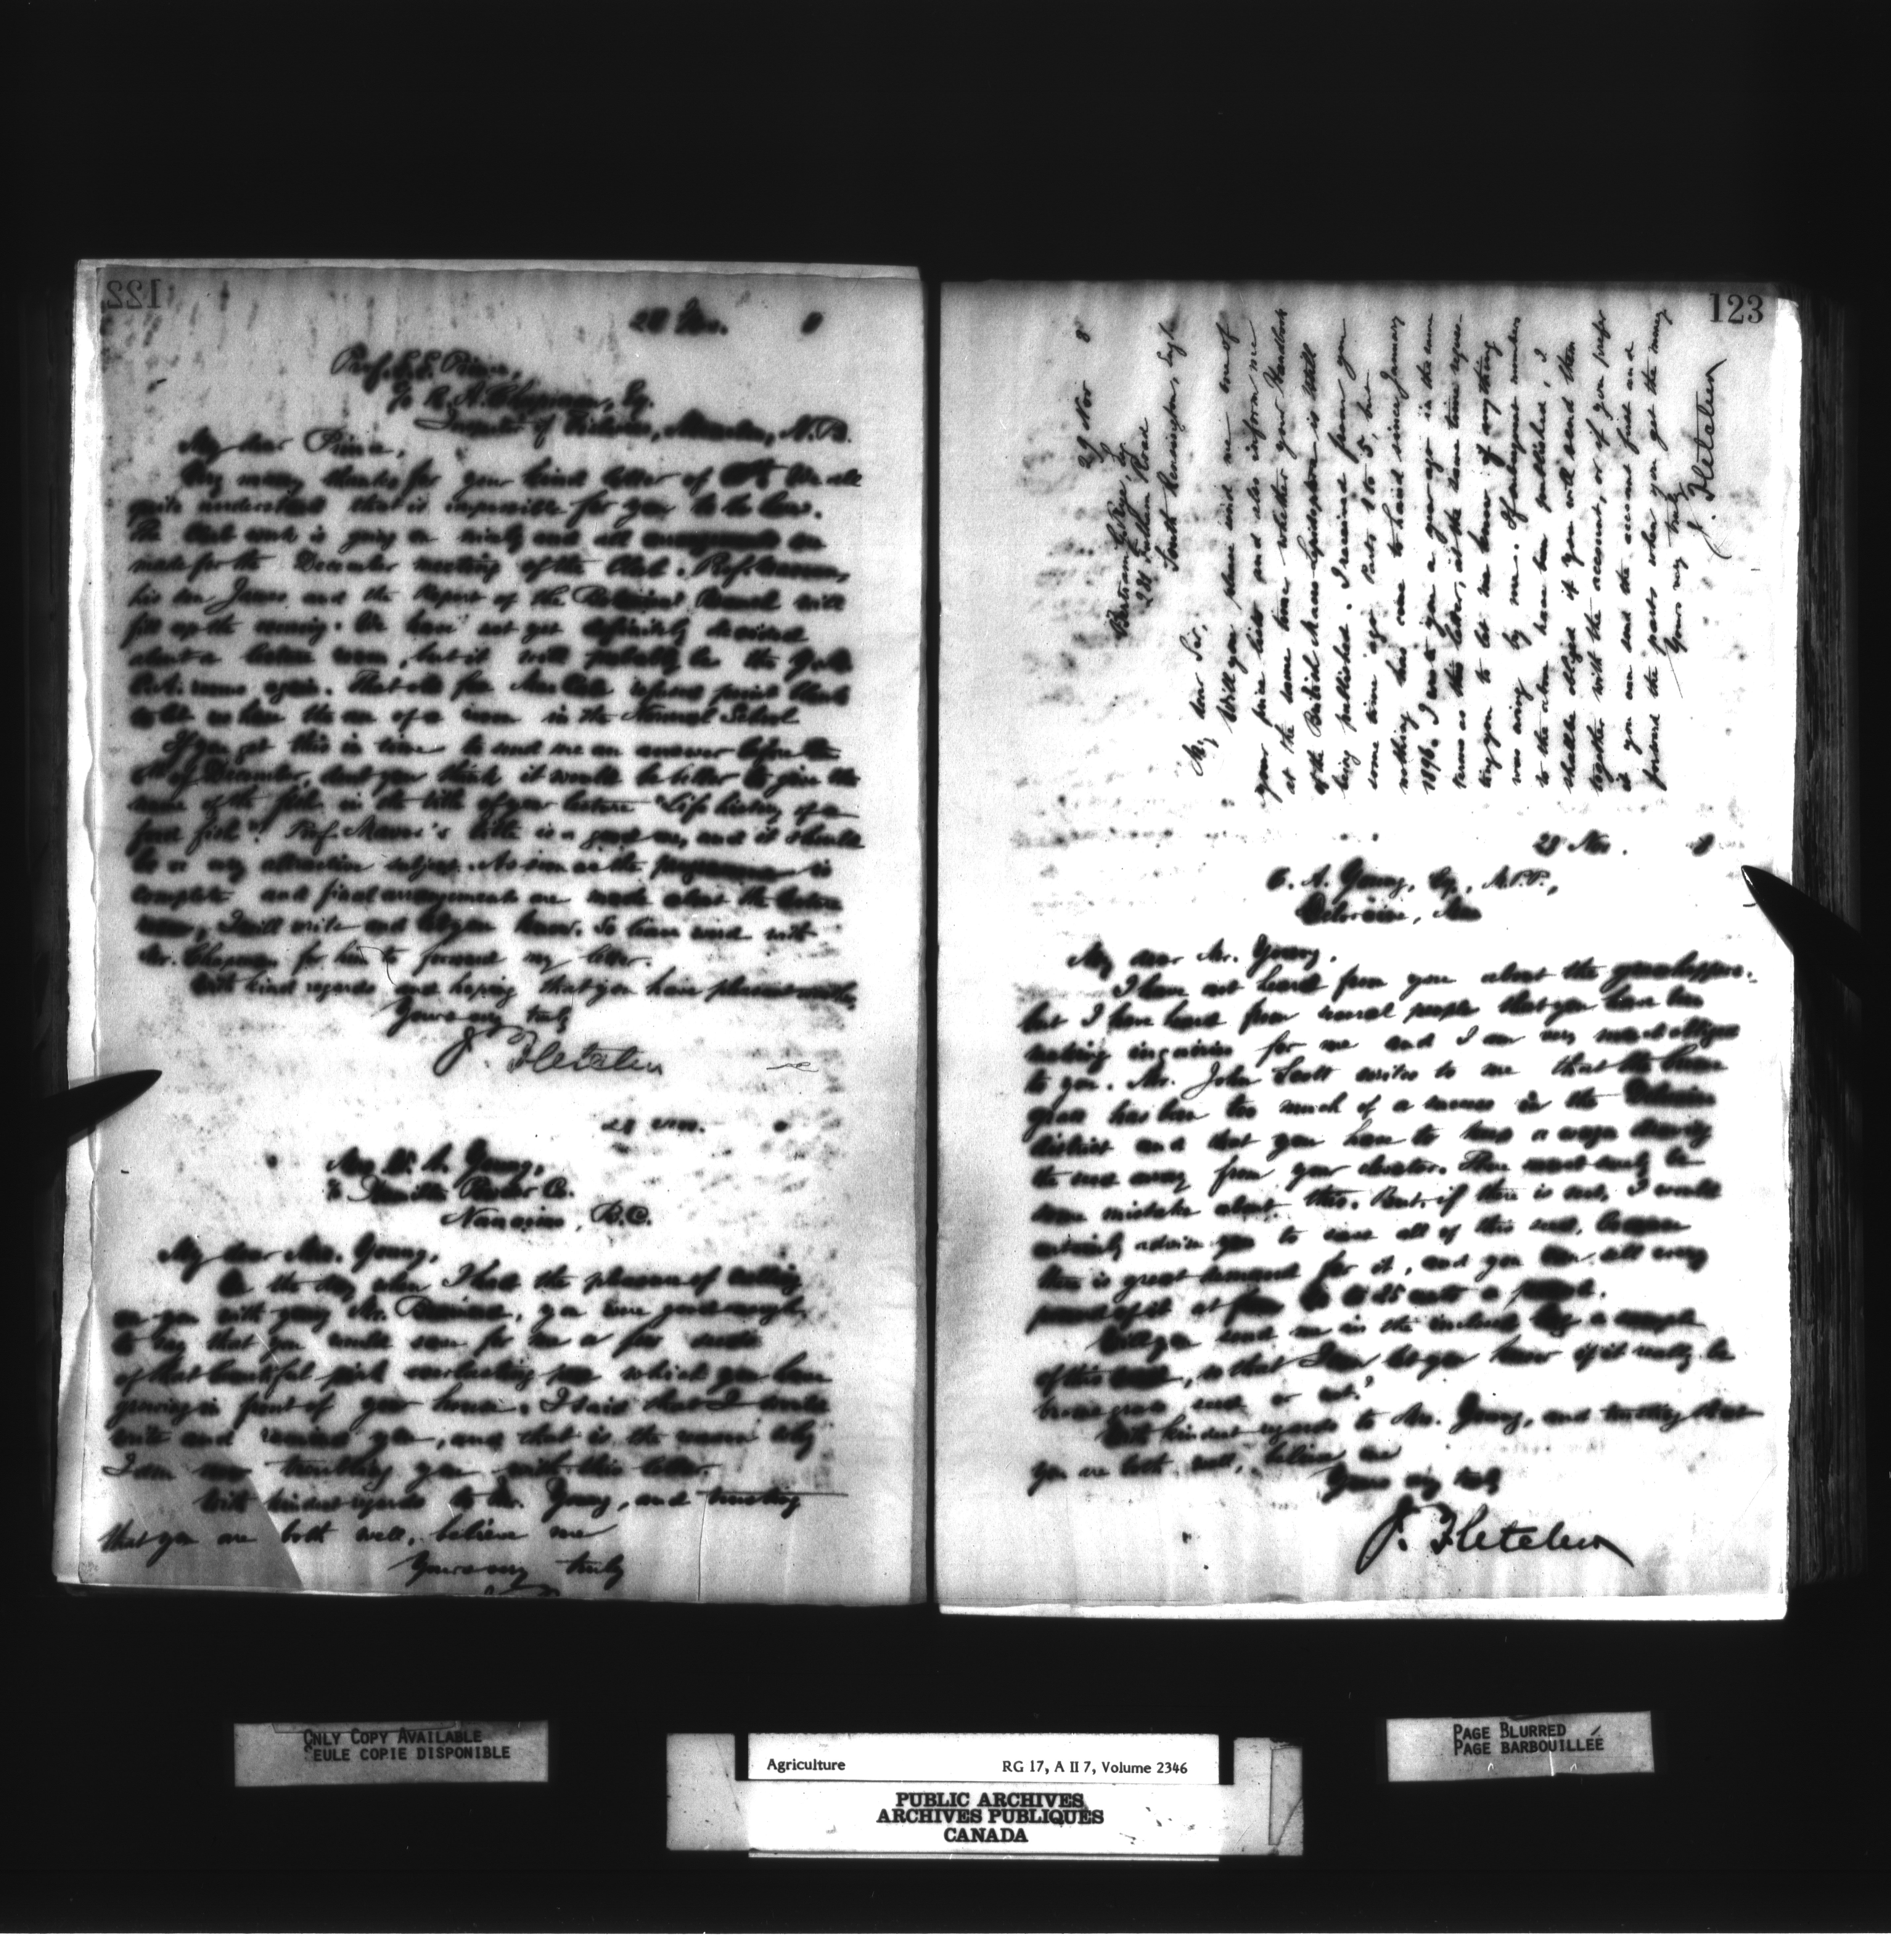 122
28 Nov. 8
Prof. E. E. Prince,
c/o R. A. Chapman, Esq.
Inspector of Fisheries, Moncton, N.B.
My dear Prince,
Very many thanks for your kind letter of We all
quite understand that it is impossible for you to be here.
The Club work is going on nicely and all arrangements are
made for the December meeting of the Club. Prof.
his son James and the Report of the Botanical Branch will
fill up the evening. We have not yet definitely decided
about a lecture room, but it will probably be the Y.M.
C.A. rooms again. That old
to let us have the use of a room in the Normal School
If you get this in time to send me an answer before the
of December, don't you think it would be better to give the
name of the fish in the title of your lecture "Life history of a
food fish". Prof. title is a good one, and it should
be a very attractive subject. As soon as the programme is
complete and final arrangements are made about the lecture
room, I will write and let you know. So leave word with
Mr. Chapman for him to forward my letter.
With kind regards and hoping that you have pleasant
Yours very truly
J. Fletcher
28 Nov. 8
Mrs W. A. Young,
c/o Hamilton Powder Co.
Nanaimo, B.C.
My dear Mrs. Young,
On the day when I had the pleasure of calling
on you with young Mr. you were good enough
to say that you would save for me a few seeds
of that beautiful pink everlasting pea which you have
growing in front of your house. I said that I would
write and remind you, and that is the reason why
I am now troubling you with this letter.
With kindest regards to Mr. Young, and trusting
that you are both well, believe me
Yours very truly
123
29 Nov 8
Bertram
Fulham Road
South Kensington, Eng
My dear Sir,
Will you please send me one of
your price lists and also inform me
at the same time whether your Handbook
of the British Macro-Lepidoptera is still
being published. I received from you
some time ago Parts 1 to 5, but
nothing has come to hand since January
1896. I wrote you a year ago in the same
terms as this letter, at the same time requesting
you to let me know if anything
was owing by me. If subsequent numbers
to the above have been published, I
shall be obliged if you will send them
together with the account, or if you prefer
it you can send the account first and
forward the parts when you get the money
Yours very truly
J. Fletcher
28 Nov. 8
C. A. Young, Esq., M.P.P.,
Deloraine, Man
My dear Mr. Young,
I have not heard from you about the grasshoppers,
but I have heard from several people that you have been
making inquiries for me and I am very much obliged
to you. Mr. John Scott writes to me that the brome
grass has been too much of a success in the Deloraine
district and that you have to keep a wagon drawing
the seed away from your elevator. There must surely be
some mistake about this. But, if there is not, I would
certainly advise you to save all of this seed, because
there is great demand for it, and you can sell every
pound of it at from to 25 cents a pound.
Will you send me in the inclosed bag a sample
of this seed, so that I can let you know if it really be
brome grass seed or not?
With kindest regards to Mrs. Young, and trusting that
you are both well, believe me
Yours very truly
J. Fletcher
ONLY COPY AVAILABLE
SEULE COPIE DISPONIBLE
Agriculture RG 17, A II 7, Volume 2346
PUBLIC ARCHIVES
ARCHIVES PUBLIQUES
CANADA
PAGE BLURRED
PAGE BARBOUILLÉE